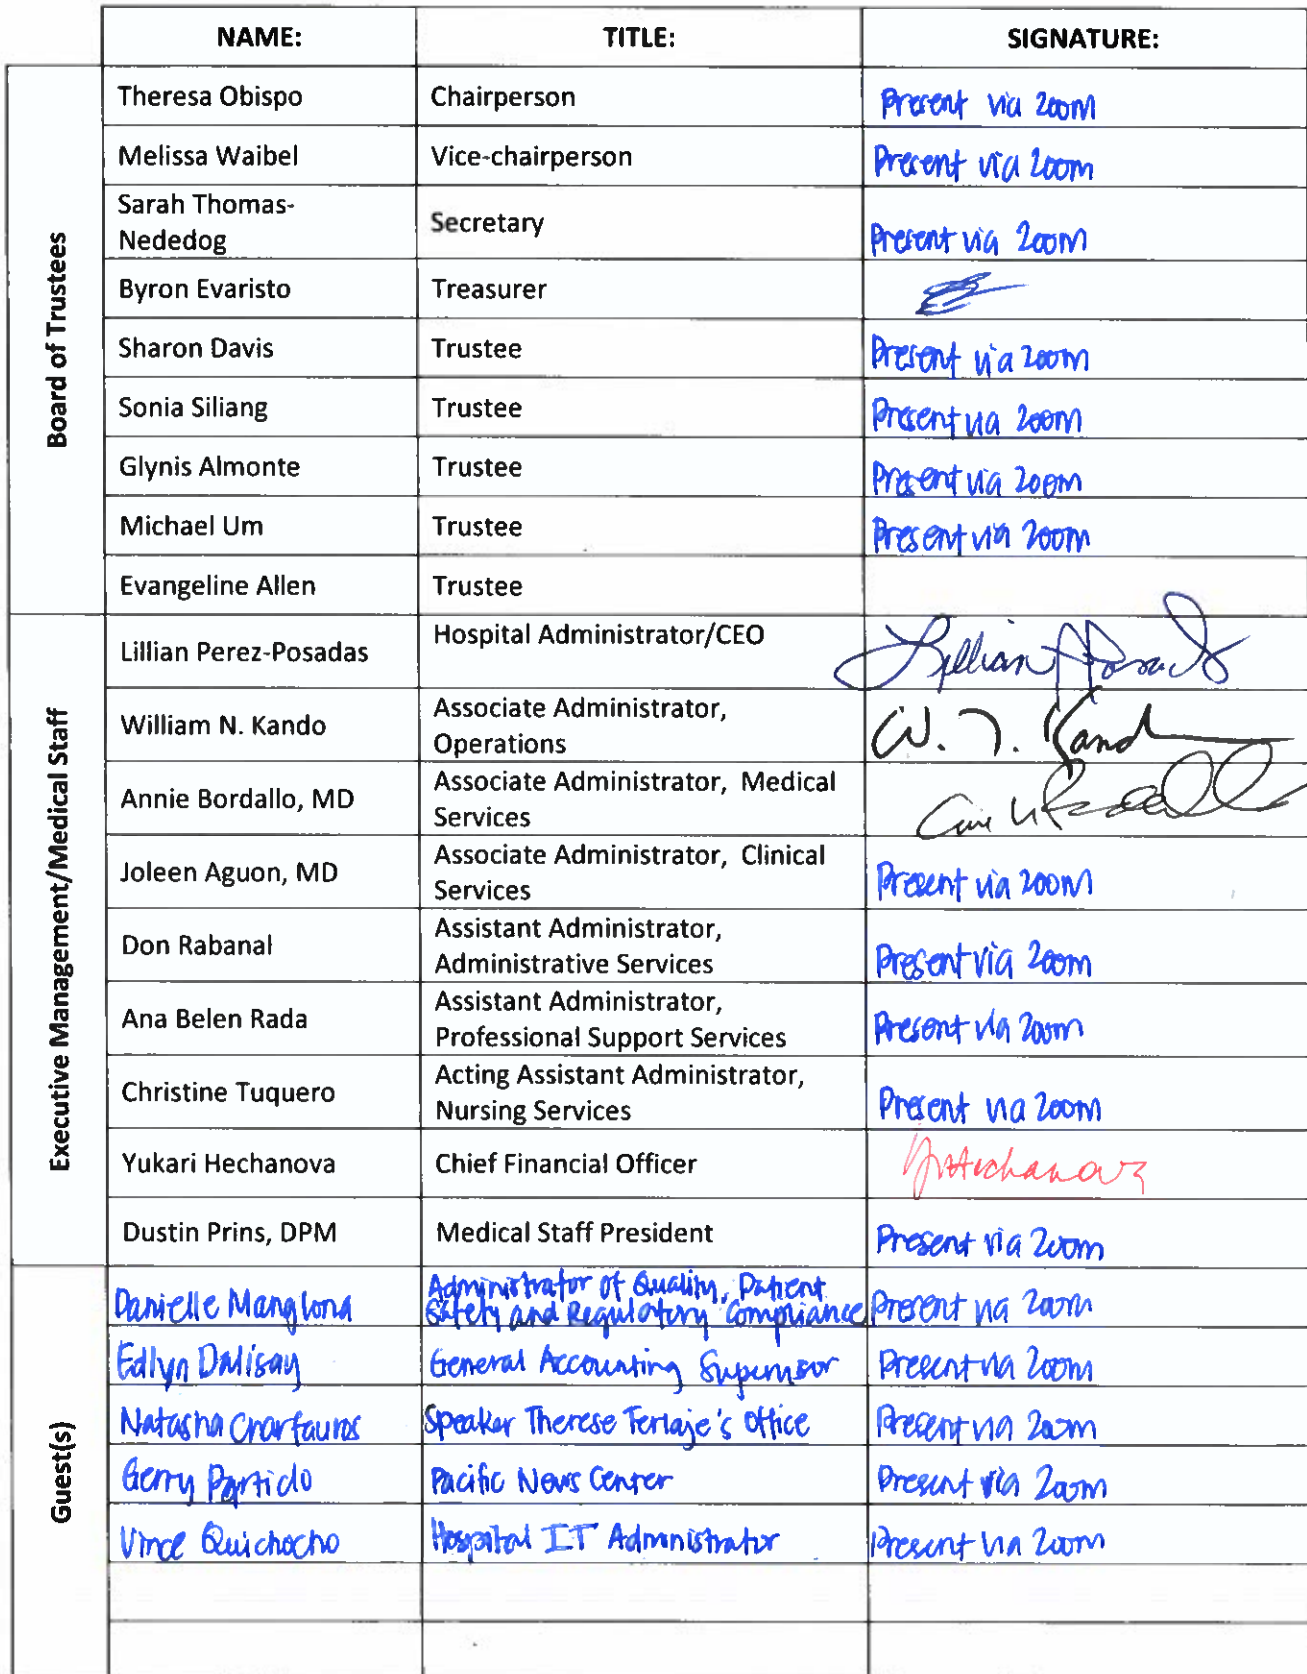 NAME: TITLE: SIGNATURE:
Board of Trustees
Theresa Obispo Chairperson Present via Zoom
Melissa Waibel Vice-chairperson Present via Zoom
Sarah Thomas-
Nededog Secretary Present via Zoom
Byron Evaristo Treasurer
Sharon Davis Trustee Present via Zoom
Sonia Siliang Trustee Present via Zoom
Glynis Almonte Trustee Present via Zoom
Michael Um Trustee Present via Zoom
Evangeline Allen Trustee
Executive Management/Medical Staff
Lillian Perez-Posadas Hospital Administrator/CEO Lillian Posadas
William N. Kando Associate Administrator,
Operations W. N. Kand
Annie Bordallo, MD Associate Administrator, Medical
Services
Joleen Aguon, MD Associate Administrator, Clinical
Services Present via Zoom
Don Rabanal Assistant Administrator,
Administrative Services Present via Zoom
Ana Belen Rada Assistant Administrator,
Professional Support Services Present via Zoom
Christine Tuquero Acting Assistant Administrator,
Nursing Services Present via Zoom
Yukari Hechanova Chief Financial Officer YHechanova
Dustin Prins, DPM Medical Staff President Present via Zoom
Guest(s)
Danielle Manglona Administrator of Quality, Patient
Safety and Regulatory Compliance Present via Zoom
Edlyn Dalisay General Accounting Supervisor Present via Zoom
Natasha Charfauros Speaker Therese Terlaje's Office Present via Zoom
Gerry Partido Pacific News Center Present via Zoom
Vince Quichocho Hospital IT Administrator Present via Zoom